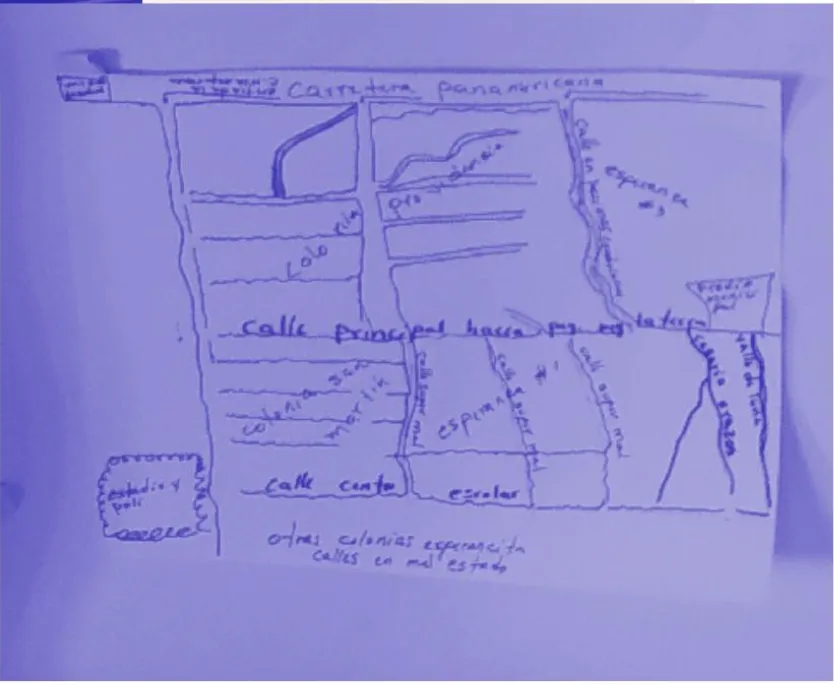 Carretera panamericana
Colonia
providencia
calle en
esperanza
#3
predio
municipal
calle principal hacia
la ferra
colonia san
martin
calle super mal
esperan
#1
calle super mal
calle super mal
valle de luna
calle cento escolar
estadio y
poli
otras colonias esperancita
calles en mal estado